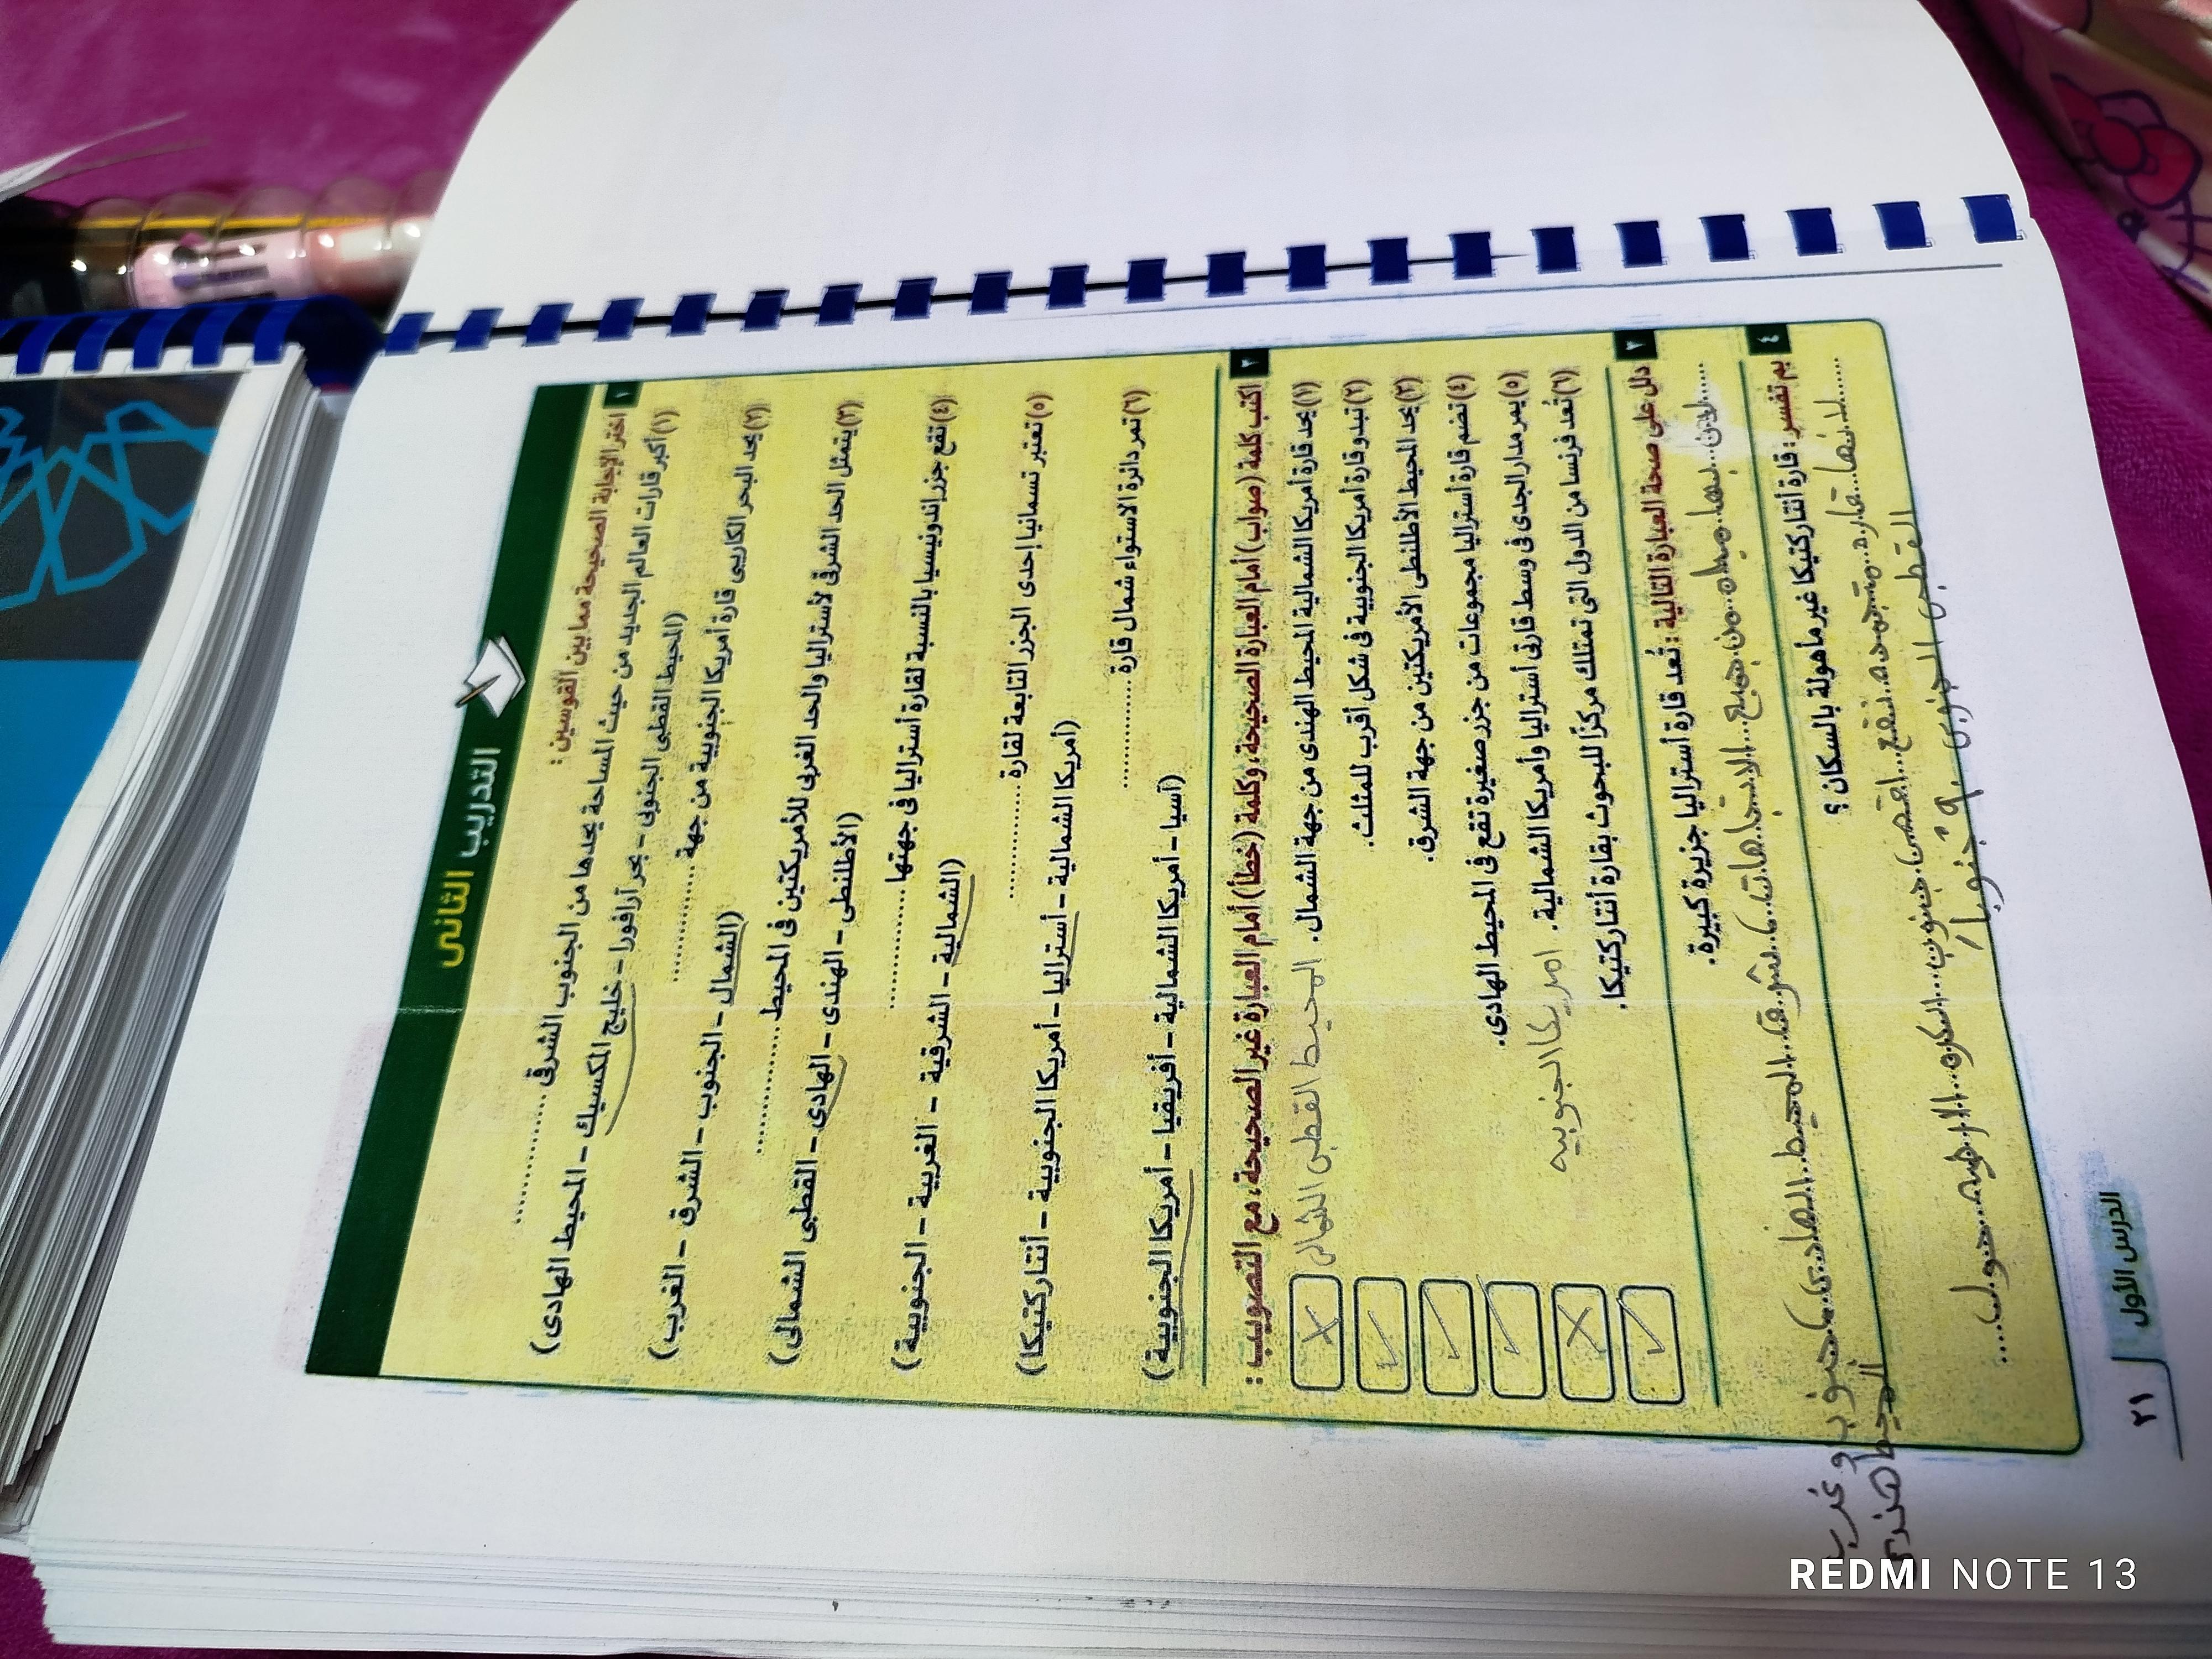 التدريب الثانى
١ اختر الإجابة الصحيحة مما بين القوسين :
(١) أكبر قارات العالم الجديد من حيث المساحة يحدها من الجنوب الشرقى ............
(المحيط القطبى الجنوبى - بحر أرافورا - خليج المكسيك - المحيط الهادى)
(٢) يحد البحر الكاريبى قارة أمريكا الجنوبية من جهة ............
(الشمال - الجنوب - الشرق - الغرب)
(٣) يتمثل الحد الشرقى لأستراليا والحد الغربى للأمريكتين فى المحيط ............
(الأطلنطى - الهندى - الهادى - القطبى الشمالى)
(٤) تقع جزر إندونيسيا بالنسبة لقارة أستراليا فى جهتها ............
(الشمالية - الشرقية - الغربية - الجنوبية)
(٥) تعتبر تسمانيا إحدى الجزر التابعة لقارة ............
(أمريكا الشمالية - أستراليا - أمريكا الجنوبية - أنتاركتيكا)
(٦) تمر دائرة الاستواء شمال قارة ............
(آسيا - أمريكا الشمالية - أفريقيا - أمريكا الجنوبية)
٢ اكتب كلمة (صواب) أمام العبارة الصحيحة، وكلمة (خطأ) أمام العبارة غير الصحيحة، مع التصويب :
(١) يحد قارة أمريكا الشمالية المحيط الهندى من جهة الشمال. المحيط القطبى الشمالى ✗
(٢) تبدو قارة أمريكا الجنوبية فى شكل أقرب للمثلث. ✓
(٣) يحد المحيط الأطلنطى الأمريكتين من جهة الشرق. ✓
(٤) تضم قارة أستراليا مجموعات من جزر صغيرة تقع فى المحيط الهادى. ✓
(٥) يمر مدار الجدى فى وسط قارتى أستراليا وأمريكا الشمالية. امريكا الجنوبيه ✗
(٦) تُعد فرنسا من الدول التى تمتلك مركزًا للبحوث بقارة أنتاركتيكا. ✓
٣ دلل على صحة العبارة التالية : تُعد قارة أستراليا جزيرة كبيرة.
لان بها مياه من جميع الاتجاهات شرق المحيط الهادى جنوب وغرب
المحيط هندى
٤ بم تفسر : قارة أنتاركتيكا غير مأهولة بالسكان ؟
لانها قاره متجمده تقع اقصى جنوب الكره الارضيه حول
القطبى الجنوبى ٩٠° جنوبا
الدرس الأول
٢١
REDMI NOTE 13